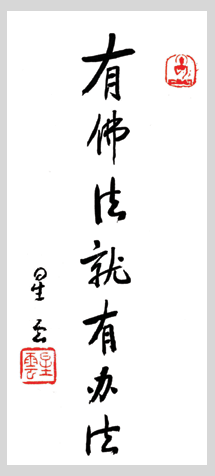 有佛法就有办法
星云
星雲